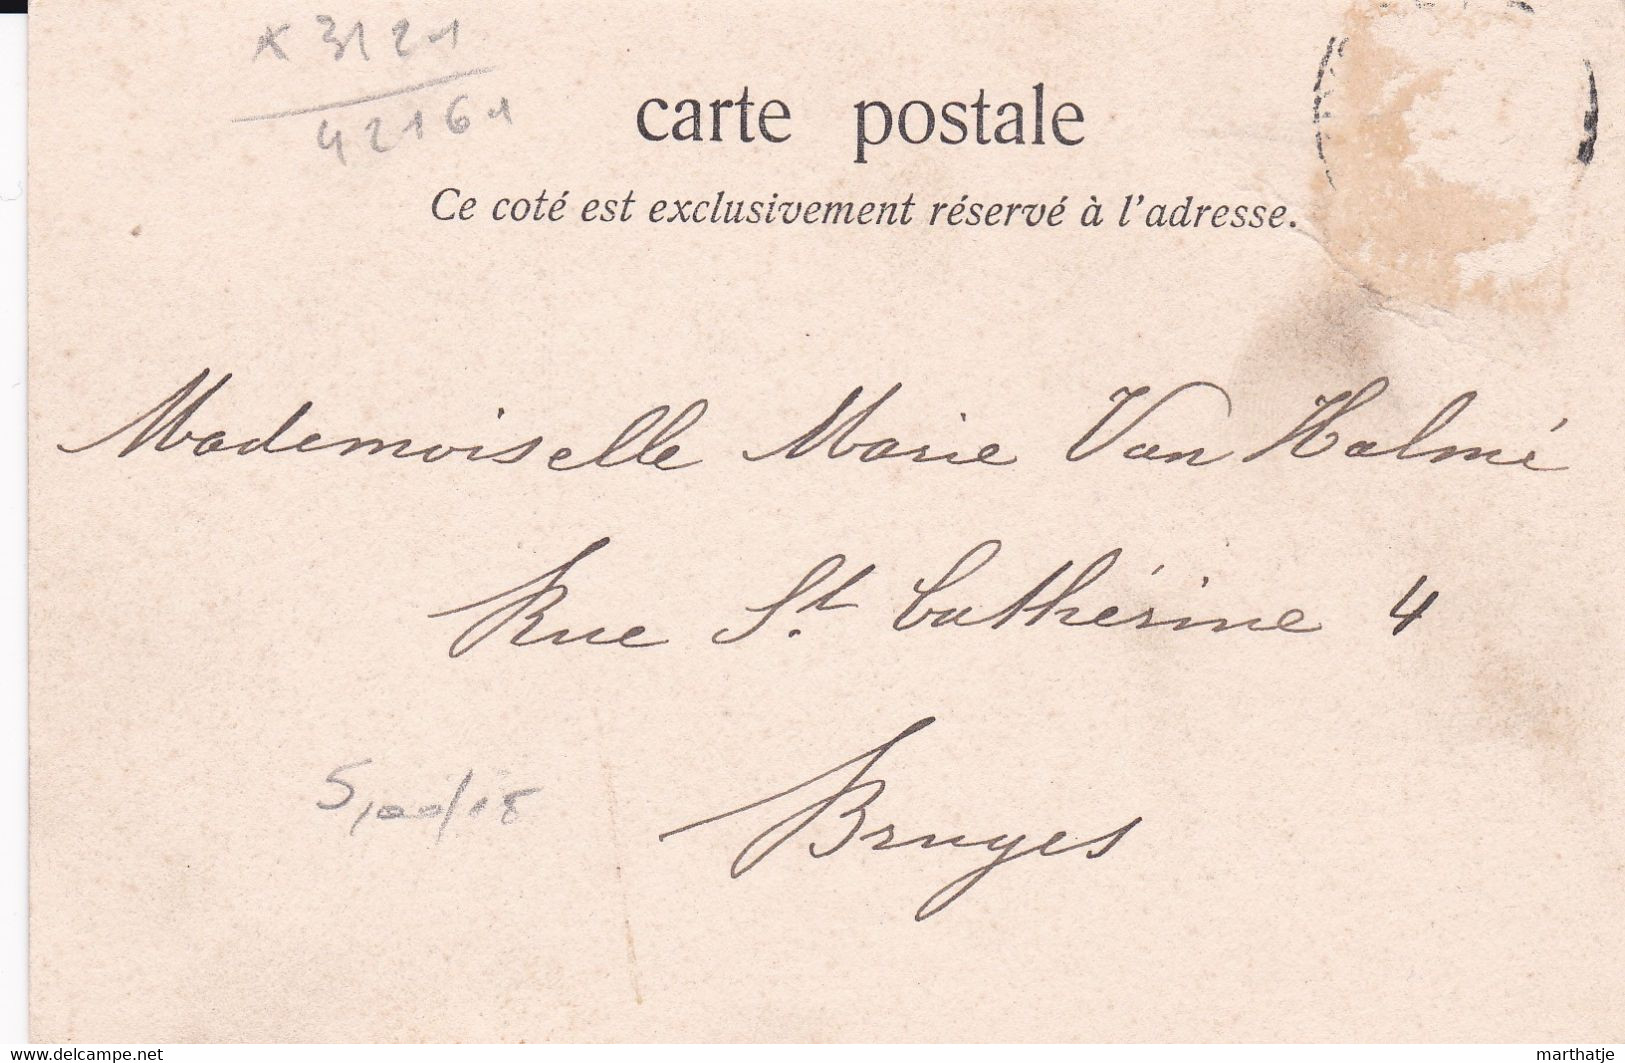 x 3121
42161
carte postale
Ce coté est exclusivement réservé à l'adresse.
Mademoiselle Marie Van Halmé
Rue St. Cathérine 4
5,00/18
Bruges
www.delcampe.net
marthatje